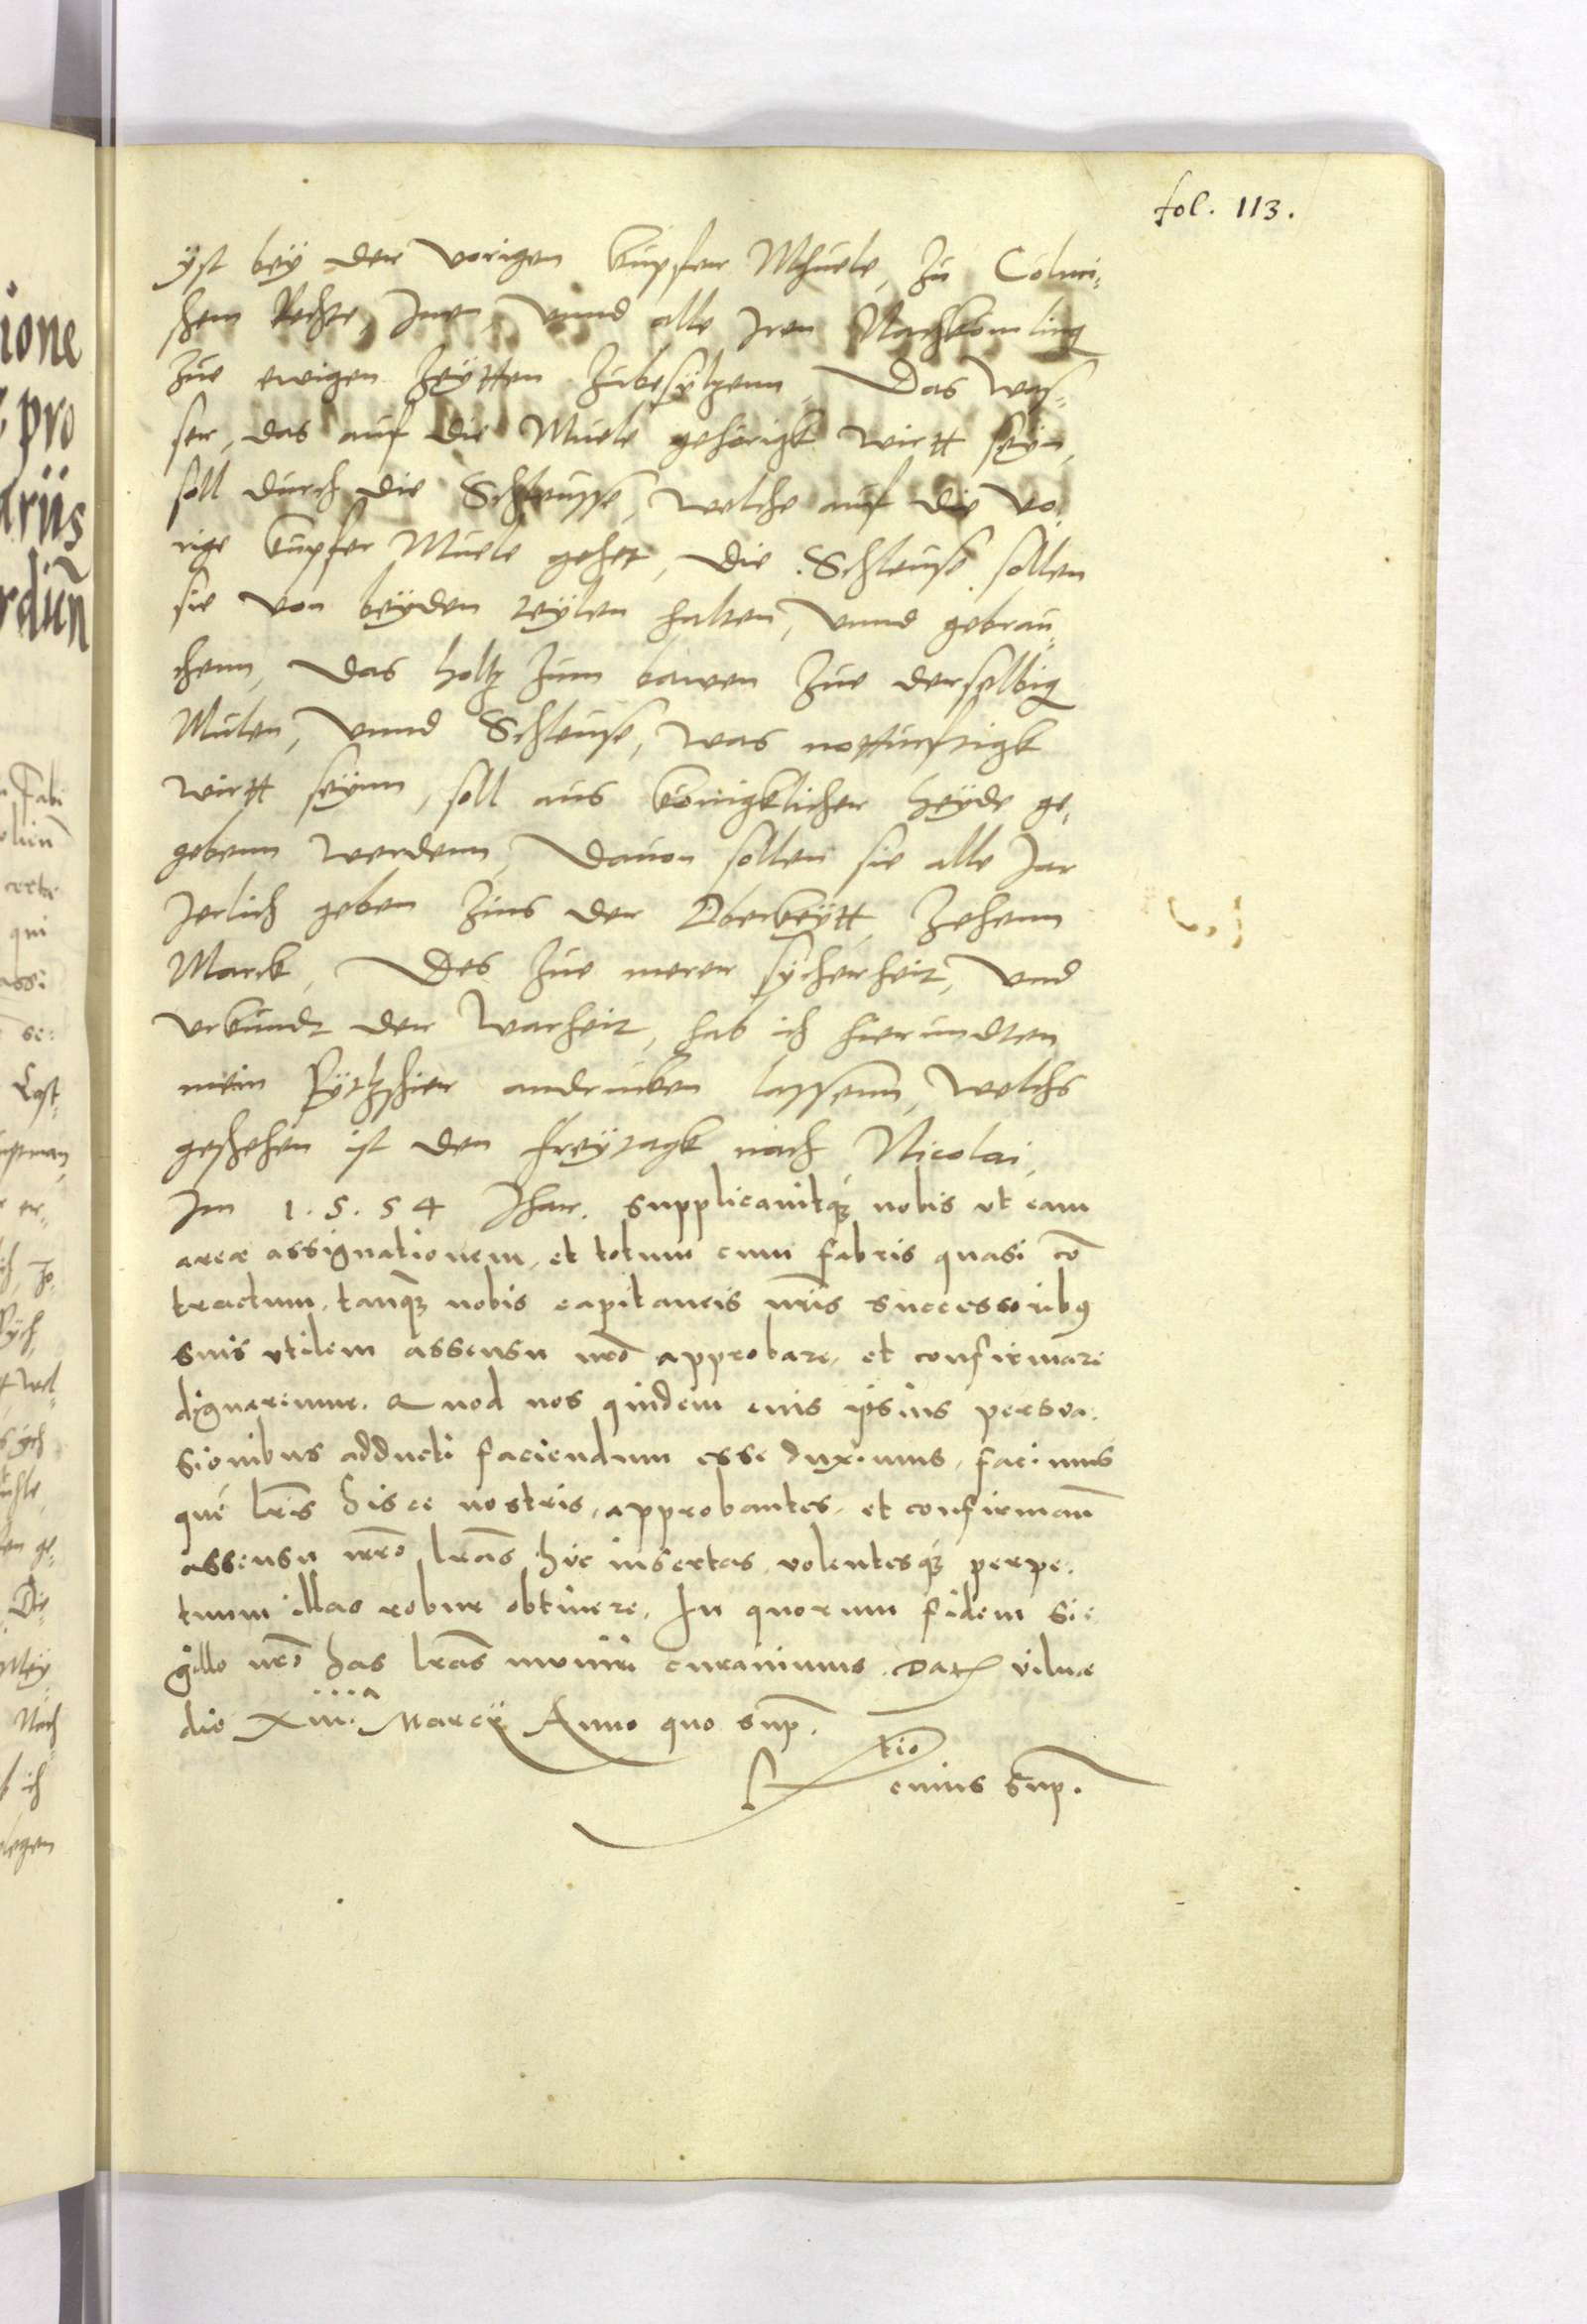 fol. 113.
yst bey der vorigen kupfer Mhuele, zu Colmi-
schem Rechte, Inen, vnnd alle Iren Nachkomling
zue ewigen zeytten zubesytzenn, Das was-
ser, das auf die Muele gehörigk wirtt seyn,
soll durch die Schleusse, welche auf die vo-
rige kupfer Muele gehet, die Schleuse sollen
sie von beyden teylen halten, vnnd gebrau-
chenn, das holtz zum bawen zue derselbig
Mulen, vnnd Schleuse, was notturftigk
wirtt seynn, soll aus königklicher heyde ge-
gebenn werdenn, Dauon sollen sie alle Jar
Jerlich geben zins der Oberkeytt, zehenn
Marck, Des zue merer sycherheit, vnd
vrkundt der warheit, hab ich hierundten
mein Pytzschier andrucken lassenn, welchs
geschehen ist den freytagk nach Nicolai,
Im 1.5.54 Jhar. supplicauitq3 nobis vt eam
areæ assignationem, et totum cum fabris quasi cō
tractum, tanq3 nobis capitaneis nr̄is successorib9
suis vtilem assensu nr̄o approbare, et confirmare
dignaremur. Quod nos quidem eius ipsius persua-
sionibus adducti faciendum esse duximus, facimus
què lr̄is hisce nostris, approbantes, et confirman̄
assensu nr̄o lr̄as huc insertas, volentesq3 perpe-
tuum illas robur obtinere, In quorum fidem si-
gillo nr̄o has lr̄as muniri curauimus. Dat vilnæ
die XIII.a Marcÿ Anno quo sup.
R tio cuius sup.
ione
pro
arijs
rdien̄
Cast-
er-
Nach
ich
legen